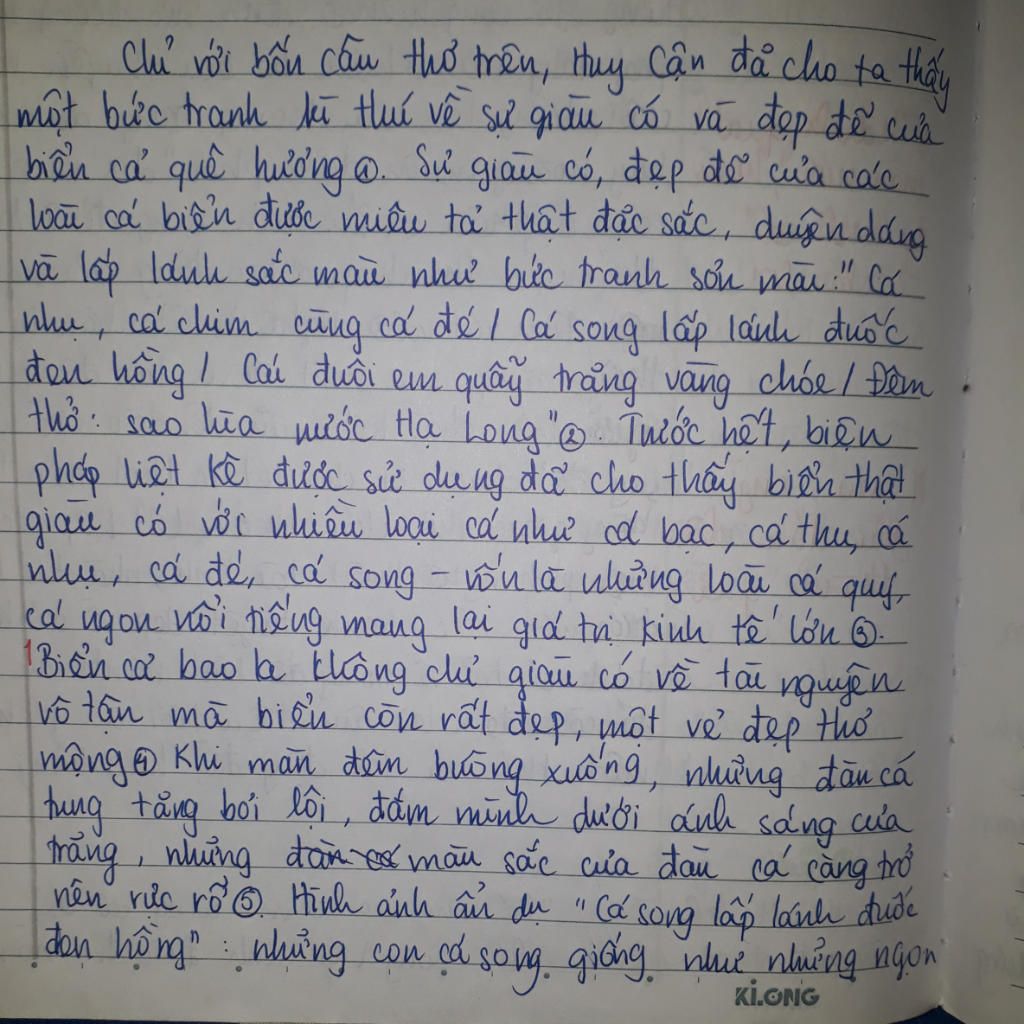 Chỉ với bốn câu thơ trên, Huy Cận đã cho ta thấy
một bức tranh kì thú về sự giàu có và đẹp đẽ của
biển cả quê hương ①. Sự giàu có, đẹp đẽ của các
loài cá biển được miêu tả thật đặc sắc, duyên dáng
và lấp lánh sắc màu như bức tranh sơn mài: "Cá
nhụ, cá chim cùng cá đé / Cá song lấp lánh đuốc
đen hồng / Cái đuôi em quẫy trăng vàng chóe / Đêm
thở: sao lùa nước Hạ Long" ②. Trước hết, biện
pháp liệt kê được sử dụng đã cho thấy biển thật
giàu có với nhiều loại cá như cá bạc, cá thu, cá
nhụ, cá đé, cá song – vốn là những loài cá quý,
cá ngon nổi tiếng mang lại giá trị kinh tế lớn ③.
1 Biển cả bao la không chỉ giàu có về tài nguyên
vô tận mà biển còn rất đẹp, một vẻ đẹp thơ
mộng ④ Khi màn đêm buông xuống, những đàn cá
tung tăng bơi lội, đắm mình dưới ánh sáng của
trăng, những đàn cá màu sắc của đàn cá càng trở
nên rực rỡ ⑤. Hình ảnh ẩn dụ "Cá song lấp lánh đuốc
đen hồng": những con cá song giống như những ngọn
KLONG